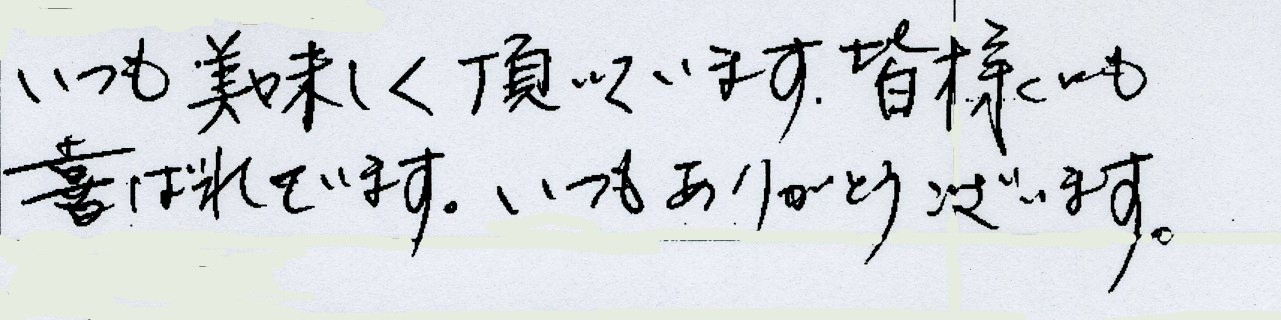 いつも美味しく頂いています.皆様にも
喜ばれています。いつもありがとうございます。